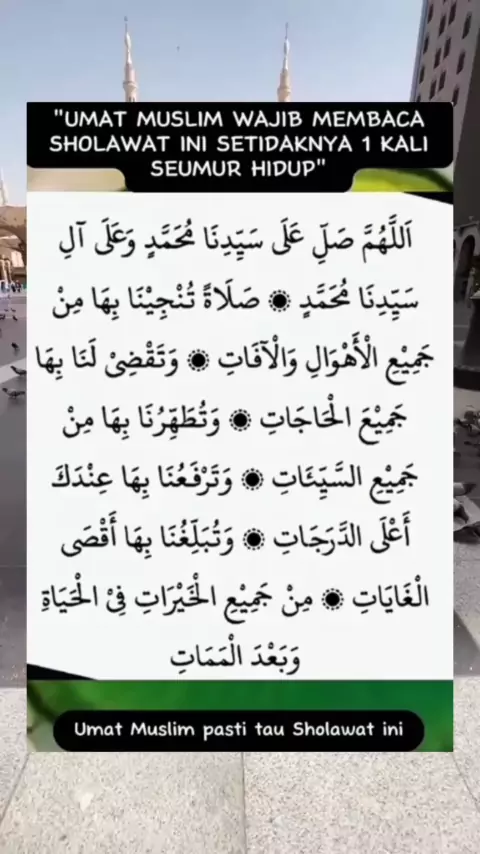 "UMAT MUSLIM WAJIB MEMBACA
SHOLAWAT INI SETIDAKNYA 1 KALI
SEUMUR HIDUP"
اَللّٰهُمَّ صَلِّ عَلَى سَيِّدِنَا مُحَمَّدٍ وَعَلَى آلِ
سَيِّدِنَا مُحَمَّدٍ ۞ صَلَاةً تُنْجِيْنَا بِهَا مِنْ
جَمِيْعِ الْأَهْوَالِ وَالْآفَاتِ ۞ وَتَقْضِىْ لَنَا بِهَا
جَمِيْعَ الْحَاجَاتِ ۞ وَتُطَهِّرُنَا بِهَا مِنْ
جَمِيْعِ السَّيِّئَاتِ ۞ وَتَرْفَعُنَا بِهَا عِنْدَكَ
أَعْلَى الدَّرَجَاتِ ۞ وَتُبَلِّغُنَا بِهَا أَقْصَى
الْغَايَاتِ ۞ مِنْ جَمِيْعِ الْخَيْرَاتِ فِىْ الْحَيَاةِ
وَبَعْدَ الْمَمَاتِ
Umat Muslim pasti tau Sholawat ini